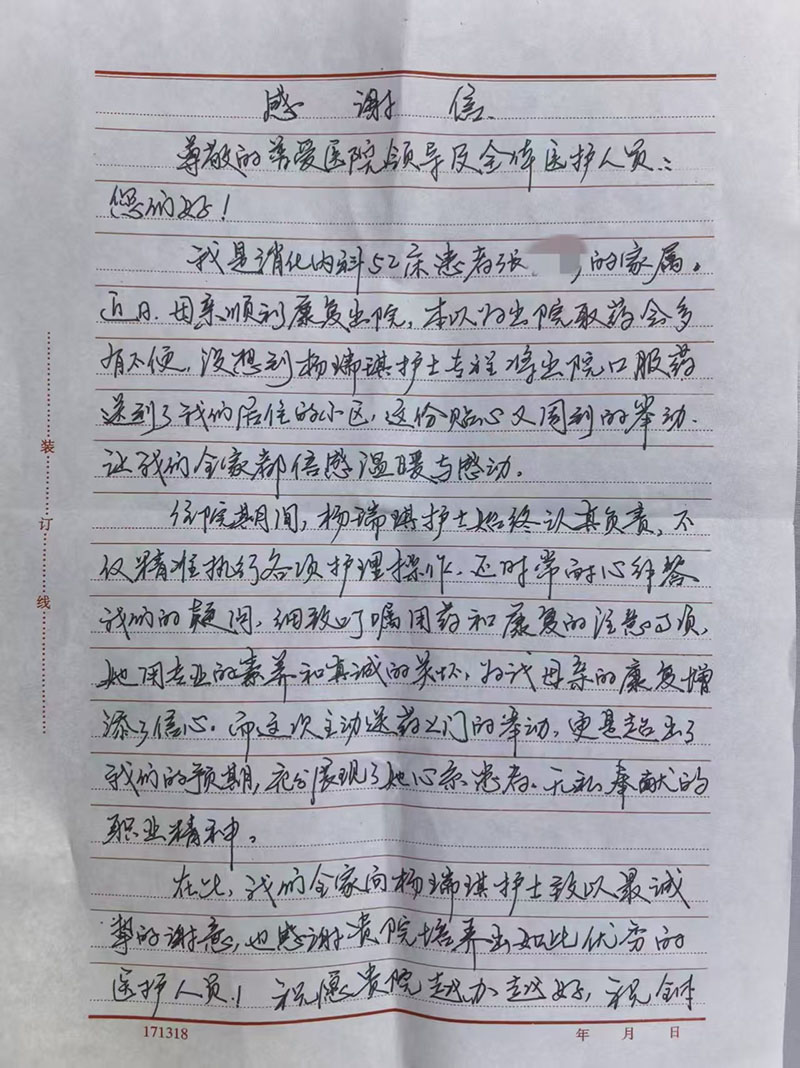 感谢信
尊敬的慈爱医院领导及全体医护人员：
您们好！
我是消化内科52床患者张，的家属。
近日，母亲顺利康复出院，本以为出院取药会多
有不便，没想到杨瑞琪护士专程将出院口服药
送到了我们居住的小区，这份贴心又周到的举动，
让我们全家都倍感温暖与感动。
住院期间，杨瑞琪护士始终认真负责，不
仅精准执行各项护理操作，还时常耐心解答
我们的疑问，细致叮嘱用药和康复的注意事项，
她用专业的素养和真诚的关怀，为我母亲的康复增
添了信心。而这次主动送药上门的举动，更是超出了
我们的预期，充分展现了她心系患者、无私奉献的
职业精神。
在此，我们全家向杨瑞琪护士致以最诚
挚的谢意，也感谢贵院培养出如此优秀的
医护人员！祝愿贵院越办越好，祝全体
装订线
171318
年 月 日